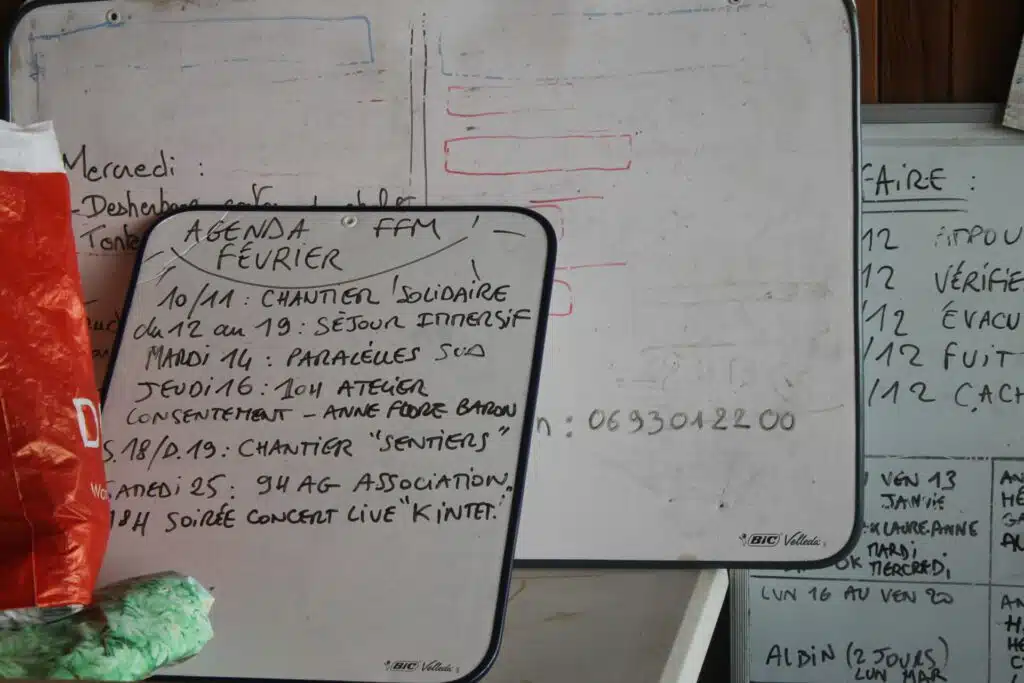 Mercredi :
- Desherbage
AGENDA FFM
FÉVRIER
10/11 : CHANTIER SOLIDAIRE
du 12 au 19 : SÉJOUR IMMERSIF
MARDI 14 : PARALÈLLES SUD
JEUDI 16 : 10H ATELIER
CONSENTEMENT - ANNE FLORE BARON
S.18/D.19 : CHANTIER "SENTIERS"
SAMEDI 25 : 9H AG ASSOCIATION.
18H SOIRÉE CONCERT LIVE "KINTET."
BIC Velleda
n : 0693012200
BIC Velleda
FAIRE :
12
12 VÉRIFIE
/12 ÉVACU
/12 FUIT
/12 CACH
VEN 13
JANVIE
LAURE-ANNE
MARDI
OK MERCREDI
LUN 16 AU VEN 20
ALBIN (2 JOURS)
LUN MAR
AN
HÉ
GA
AL
AN